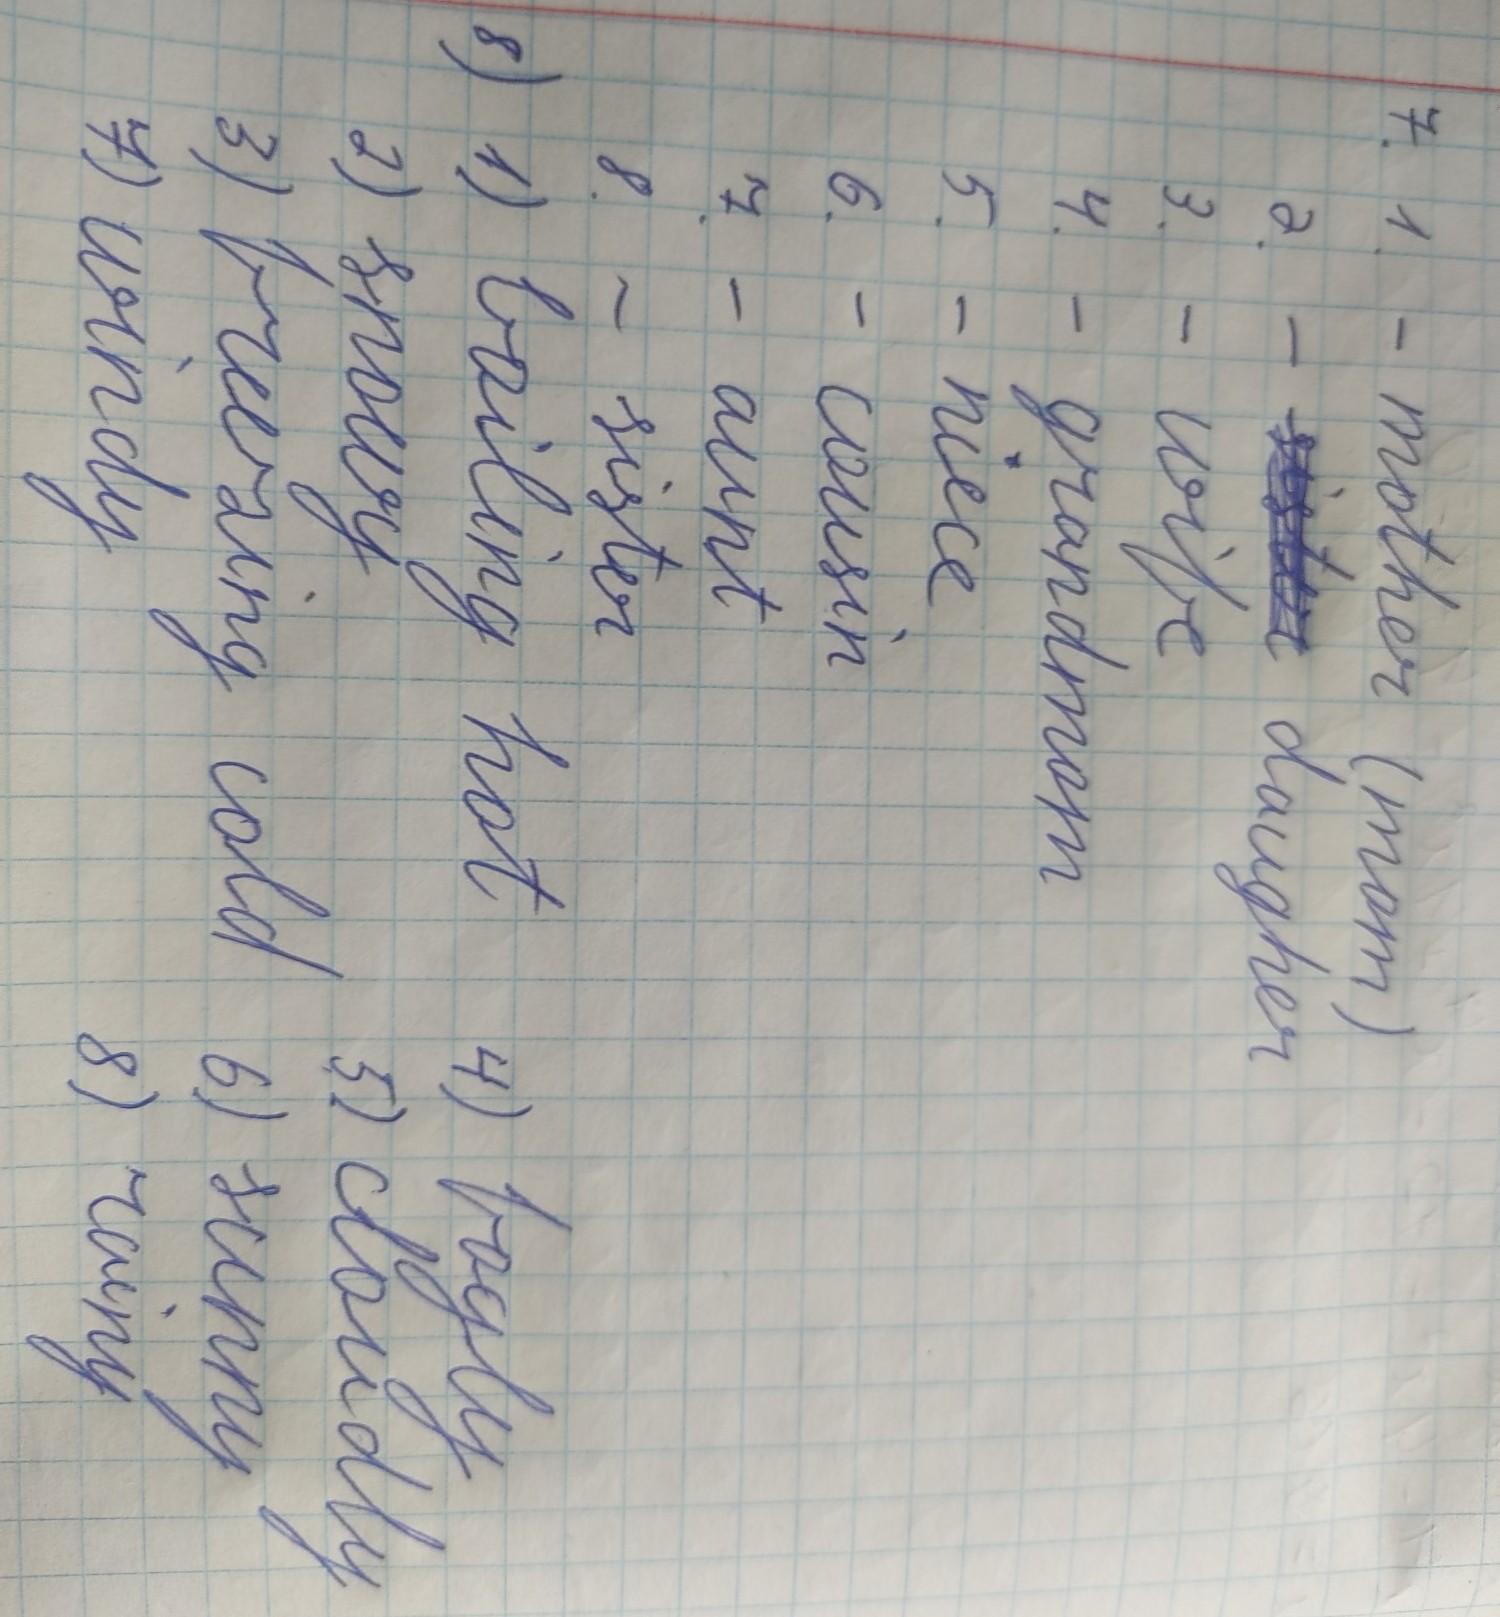 7. 1. - mother (mom)
2. - daugher
3. - wife
4. - grandmom
5. - niece
6. - cousin
7. - aunt
8. ~ sister
8) 1) boiling hot 4) fogly
2) snowy 5) cloudly
3) freezing cold 6) sunny
7) windy 8) rainy